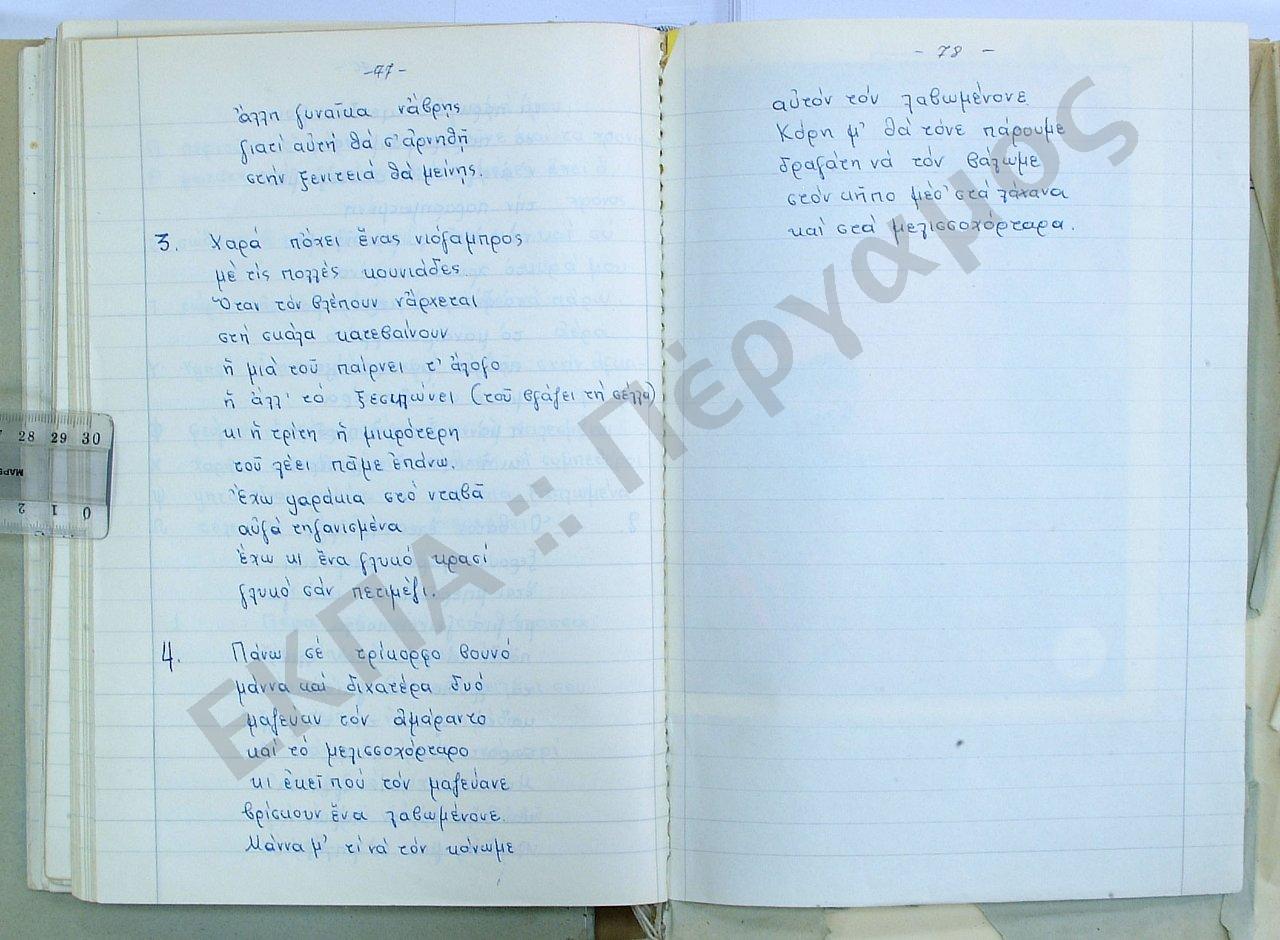 -77-
Ἄλλη γυναῖκα νἄβρης
γιατί αὐτή θά σ' ἀρνηθῆ
στήν ξενιτειά θά μείνης.
3. Χαρά πὄχει ἕνας νιόγαμπρος
μέ τίς πολλές κουνιάδες
Ὅταν τόν βλέπουν νἄρχεται
στή σκάλα κατεβαίνουν
ἡ μιά τοῦ παίρνει τ' ἄλογο
ἡ ἄλλ' τό ξεσελώνει (τοῦ βγάζει τή σέλλα)
κι ἡ τρίτη ἡ μικρότερη
τοῦ λέει πᾶμε ἐπάνω.
Ἔχω ψαράκια στό νταβᾶ
αὐγά τηγανισμένα
ἔχω κι ἕνα γλυκό κρασί
γλυκό σάν πετιμέζι.
4. Πάνω σέ τρίκορφο βουνό
μάννα καί διχατέρα δυό
μαζεῦαν τόν ἀμάραντο
καί τό μελισσοχόρταρο
κι ἐκεῖ πού τόν μαζεύανε
βρίσκουν ἕνα λαβωμένονε.
Μάννα μ' τί νά τόν κάνωμε
- 78 -
αὐτόν τόν λαβωμένονε
Κόρη μ' θά τόνε πάρουμε
δραγάτη νά τόν βάλωμε
στόν κῆπο μέσ' στά λάχανα
καί στά μελισσοχόρταρα.
ΕΚΠΑ :: Πέργαμος
28 29 30
2 1 0